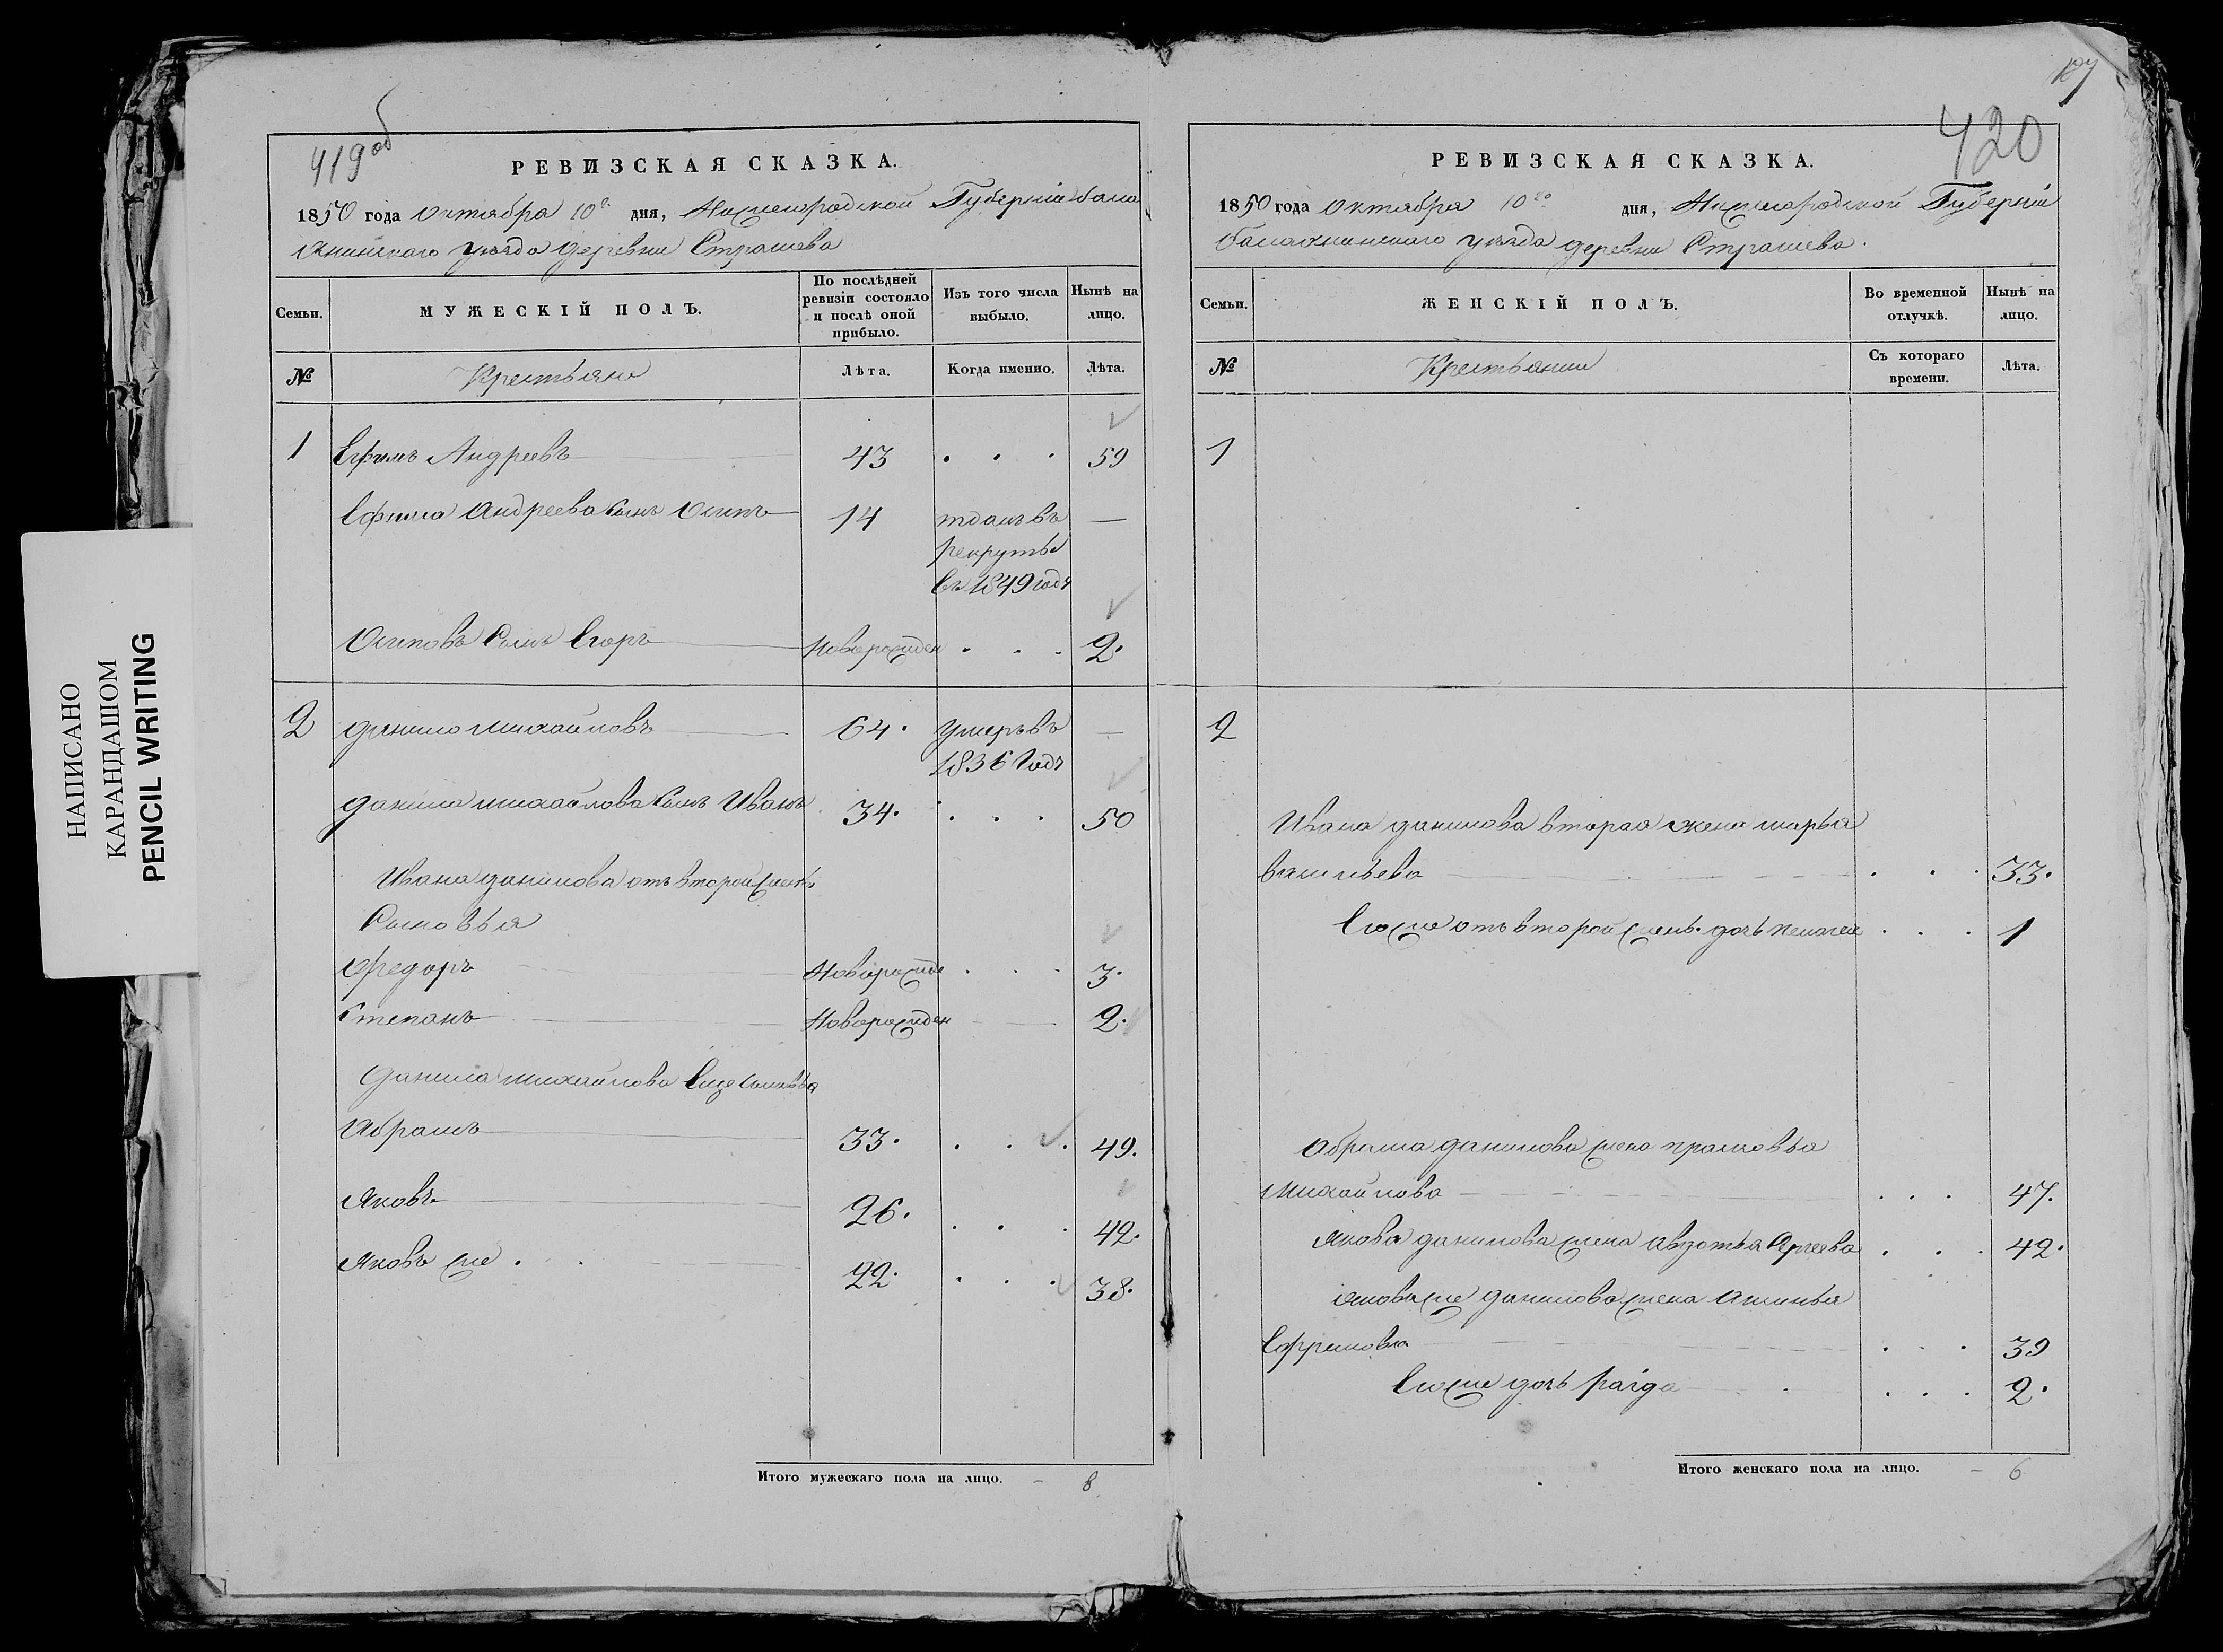 НАПИСАНО
КАРАНДАШОМ
PENCIL WRITING
419об
РЕВИЗСКАЯ СКАЗКА.
1850 года Октября 10г. дня, Нижегородской Губерніи бала
хнинскаго уѣзда деревни Страшева
Семьи.
МУЖЕСКІЙ ПОЛЪ.
По послѣдней ревизіи состояло и послѣ оной прибыло.
Изъ того числа выбыло.
Нынѣ на лицо.
№
Крестьяне
Лѣта.
Когда именно.
Лѣта.
1 Ефимъ Андреевъ 43 . . . 59
Ефима Андреева сынъ Осипъ 14 отданъ въ —
рекруты
въ 1849 годѣ
Осиповъ сынъ Егоръ Новорожден . . . 2.
2 Данило Михайловъ 64. умеръ въ —
1836 годѣ
Данила Михайлова сынъ Иванъ 34. . . . 50
Ивана Данилова отъ второй жены
Сыновья
Федоръ Новорожде . . . 3.
Степанъ Новорожден 2.
Данила Михайлова Еще сыновья
Абрамъ 33. . . . 49.
Яковъ 26. . . . 42.
Яковъ же . . 22. . . . 38.
Итого мужескаго пола на лицо. - 8
420
РЕВИЗСКАЯ СКАЗКА.
1850 года Октября 10го дня, Нижегородской Губерніи
балахнинскаго уѣзда деревни Страшева.
Семьи.
ЖЕНСКІЙ ПОЛЪ.
Во временной отлучкѣ.
Нынѣ на лицо.
№
Крестьянки
Съ котораго времени.
Лѣта.
1
2
Ивана Данилова вторая жена Марья
Васильева . . . 33.
Его же отъ второй жены дочь Пелагея . . . 1
Абрама Данилова жена Прасковья
Михайлова . . . 47.
Якова Данилова жена Авдотья Сергеева . . . 42.
Якова же Данилова жена Аксинья
Ефремова . . . 39
Его же дочь Раіда . . . 2.
Итого женскаго пола на лицо. - 6